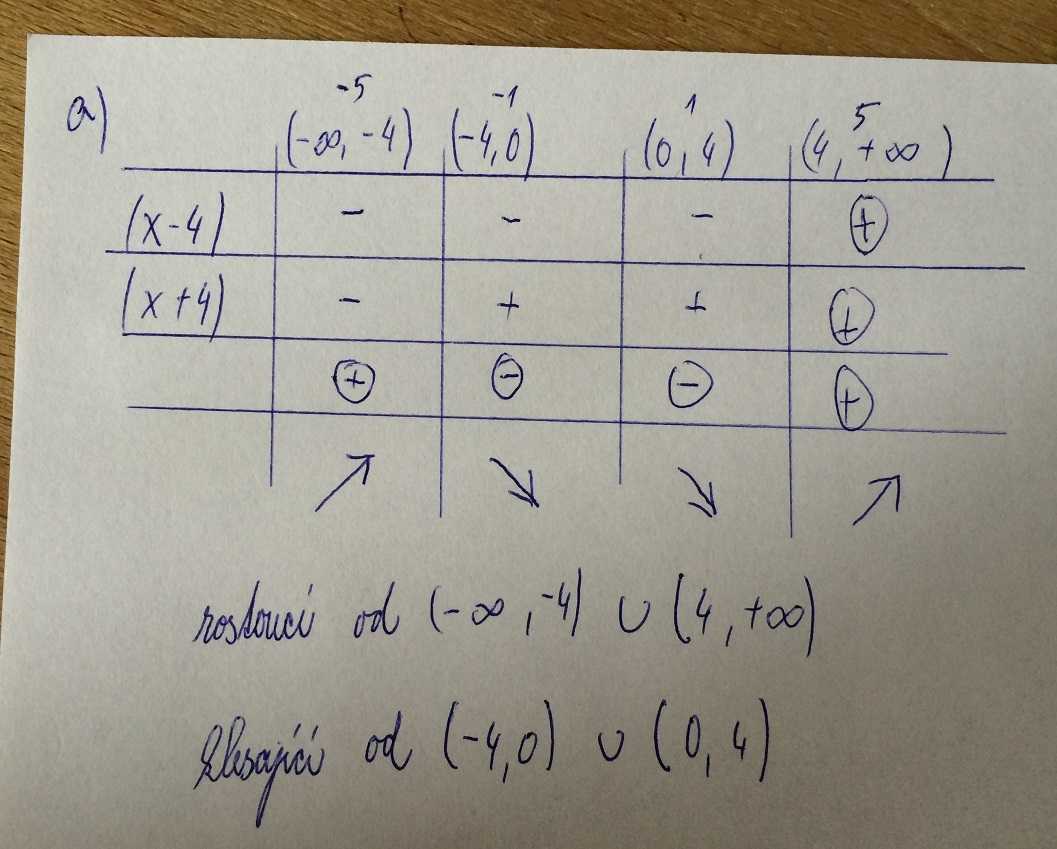 a)
-5 -1 1 5
(-∞, -4) (-4,0) (0,4) (4, +∞)
(x-4) - - - +
(x+4) - + + +
+ - - +
↗ ↘ ↘ ↗
rostoucí od (-∞, -4) ∪ (4, +∞)
klesající od (-4,0) ∪ (0,4)